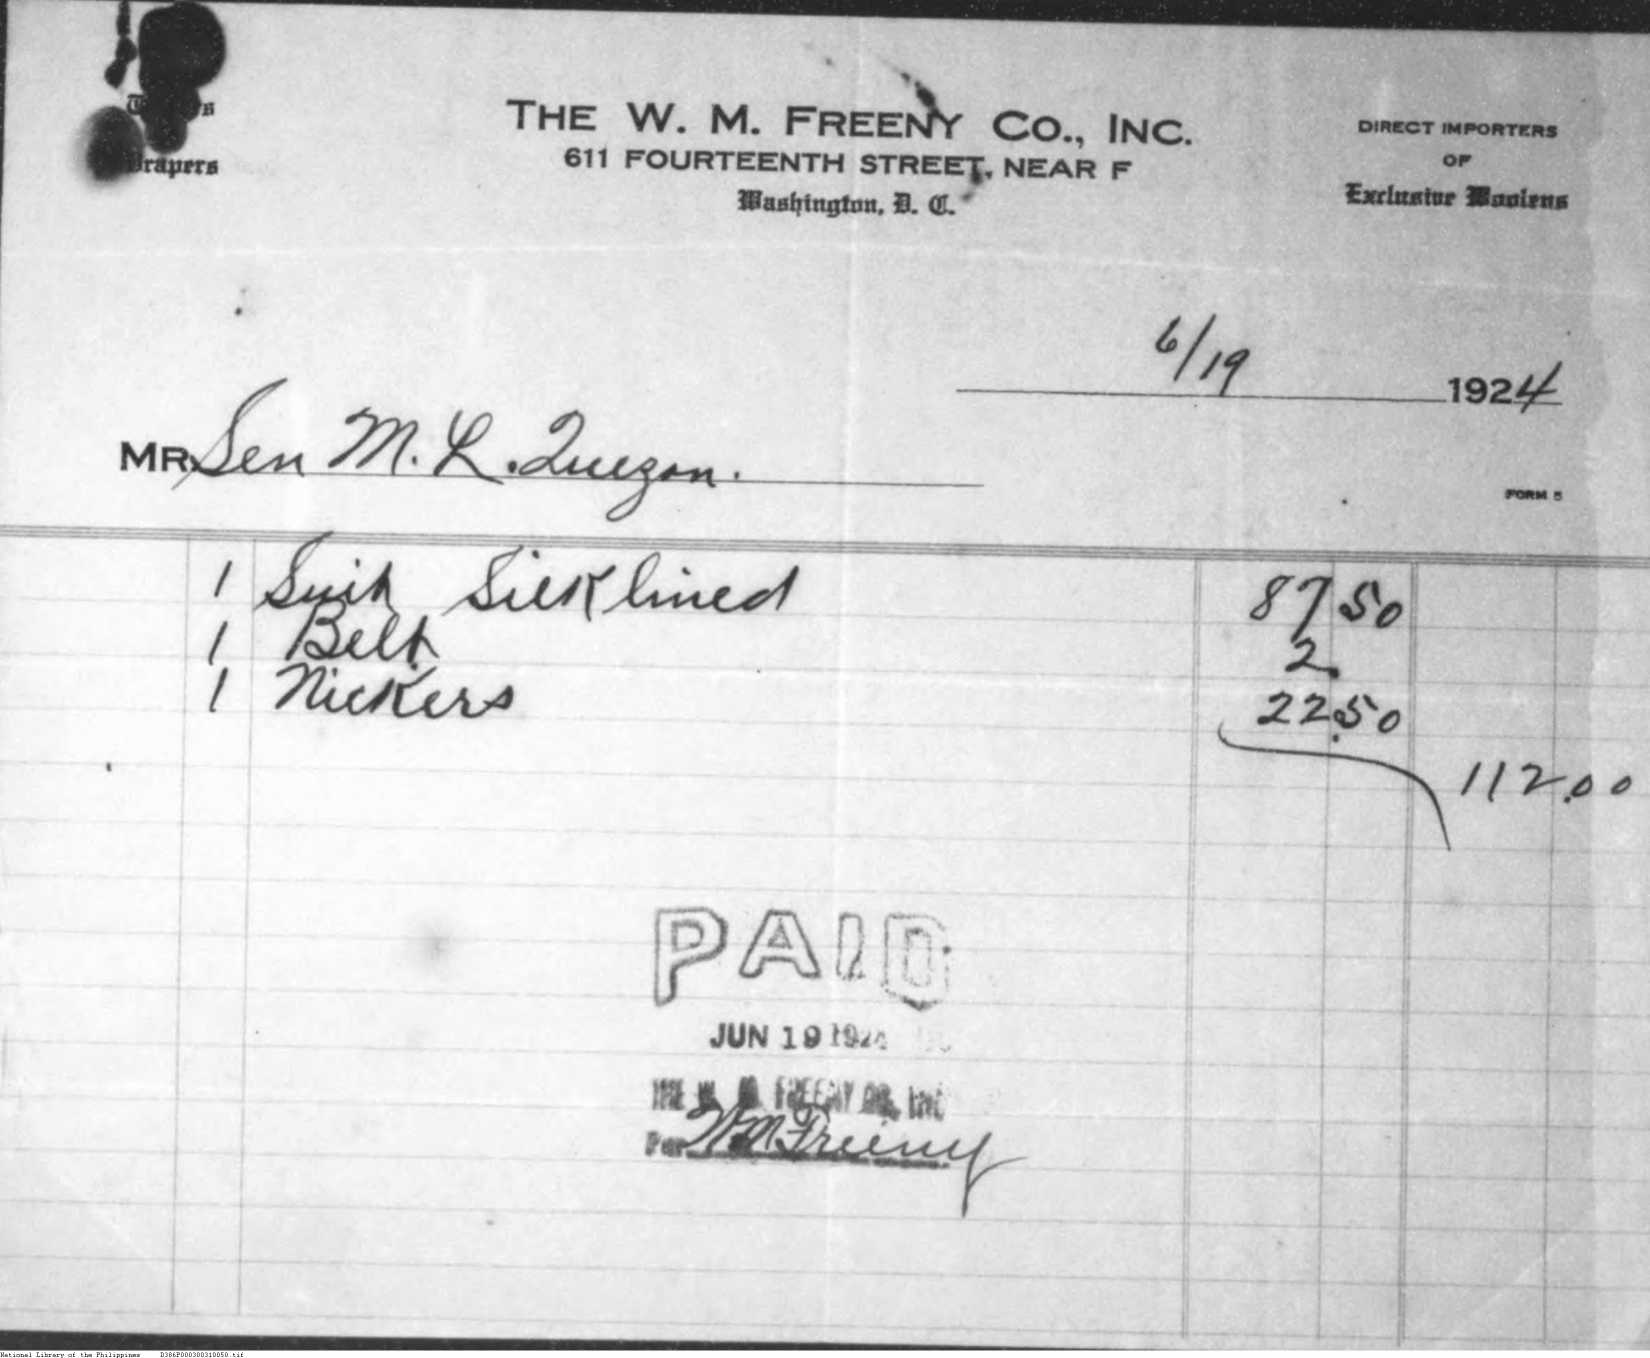 Drapers
THE W. M. FREENY CO., INC.
611 FOURTEENTH STREET, NEAR F
Washington, D. C.
DIRECT IMPORTERS
OF
Exclusive Woolens
6/19 1924
MR Sen M. L. Quezon.
FORM 5
1 Suit Silk lined 87 50
1 Belt 2.
1 Nickers 22.50
112.00
PAID
JUN 19 1924
THE W. M. FREENY CO., INC
Per W M Freeny
National Library of the Philippines D386P000300310050.tif